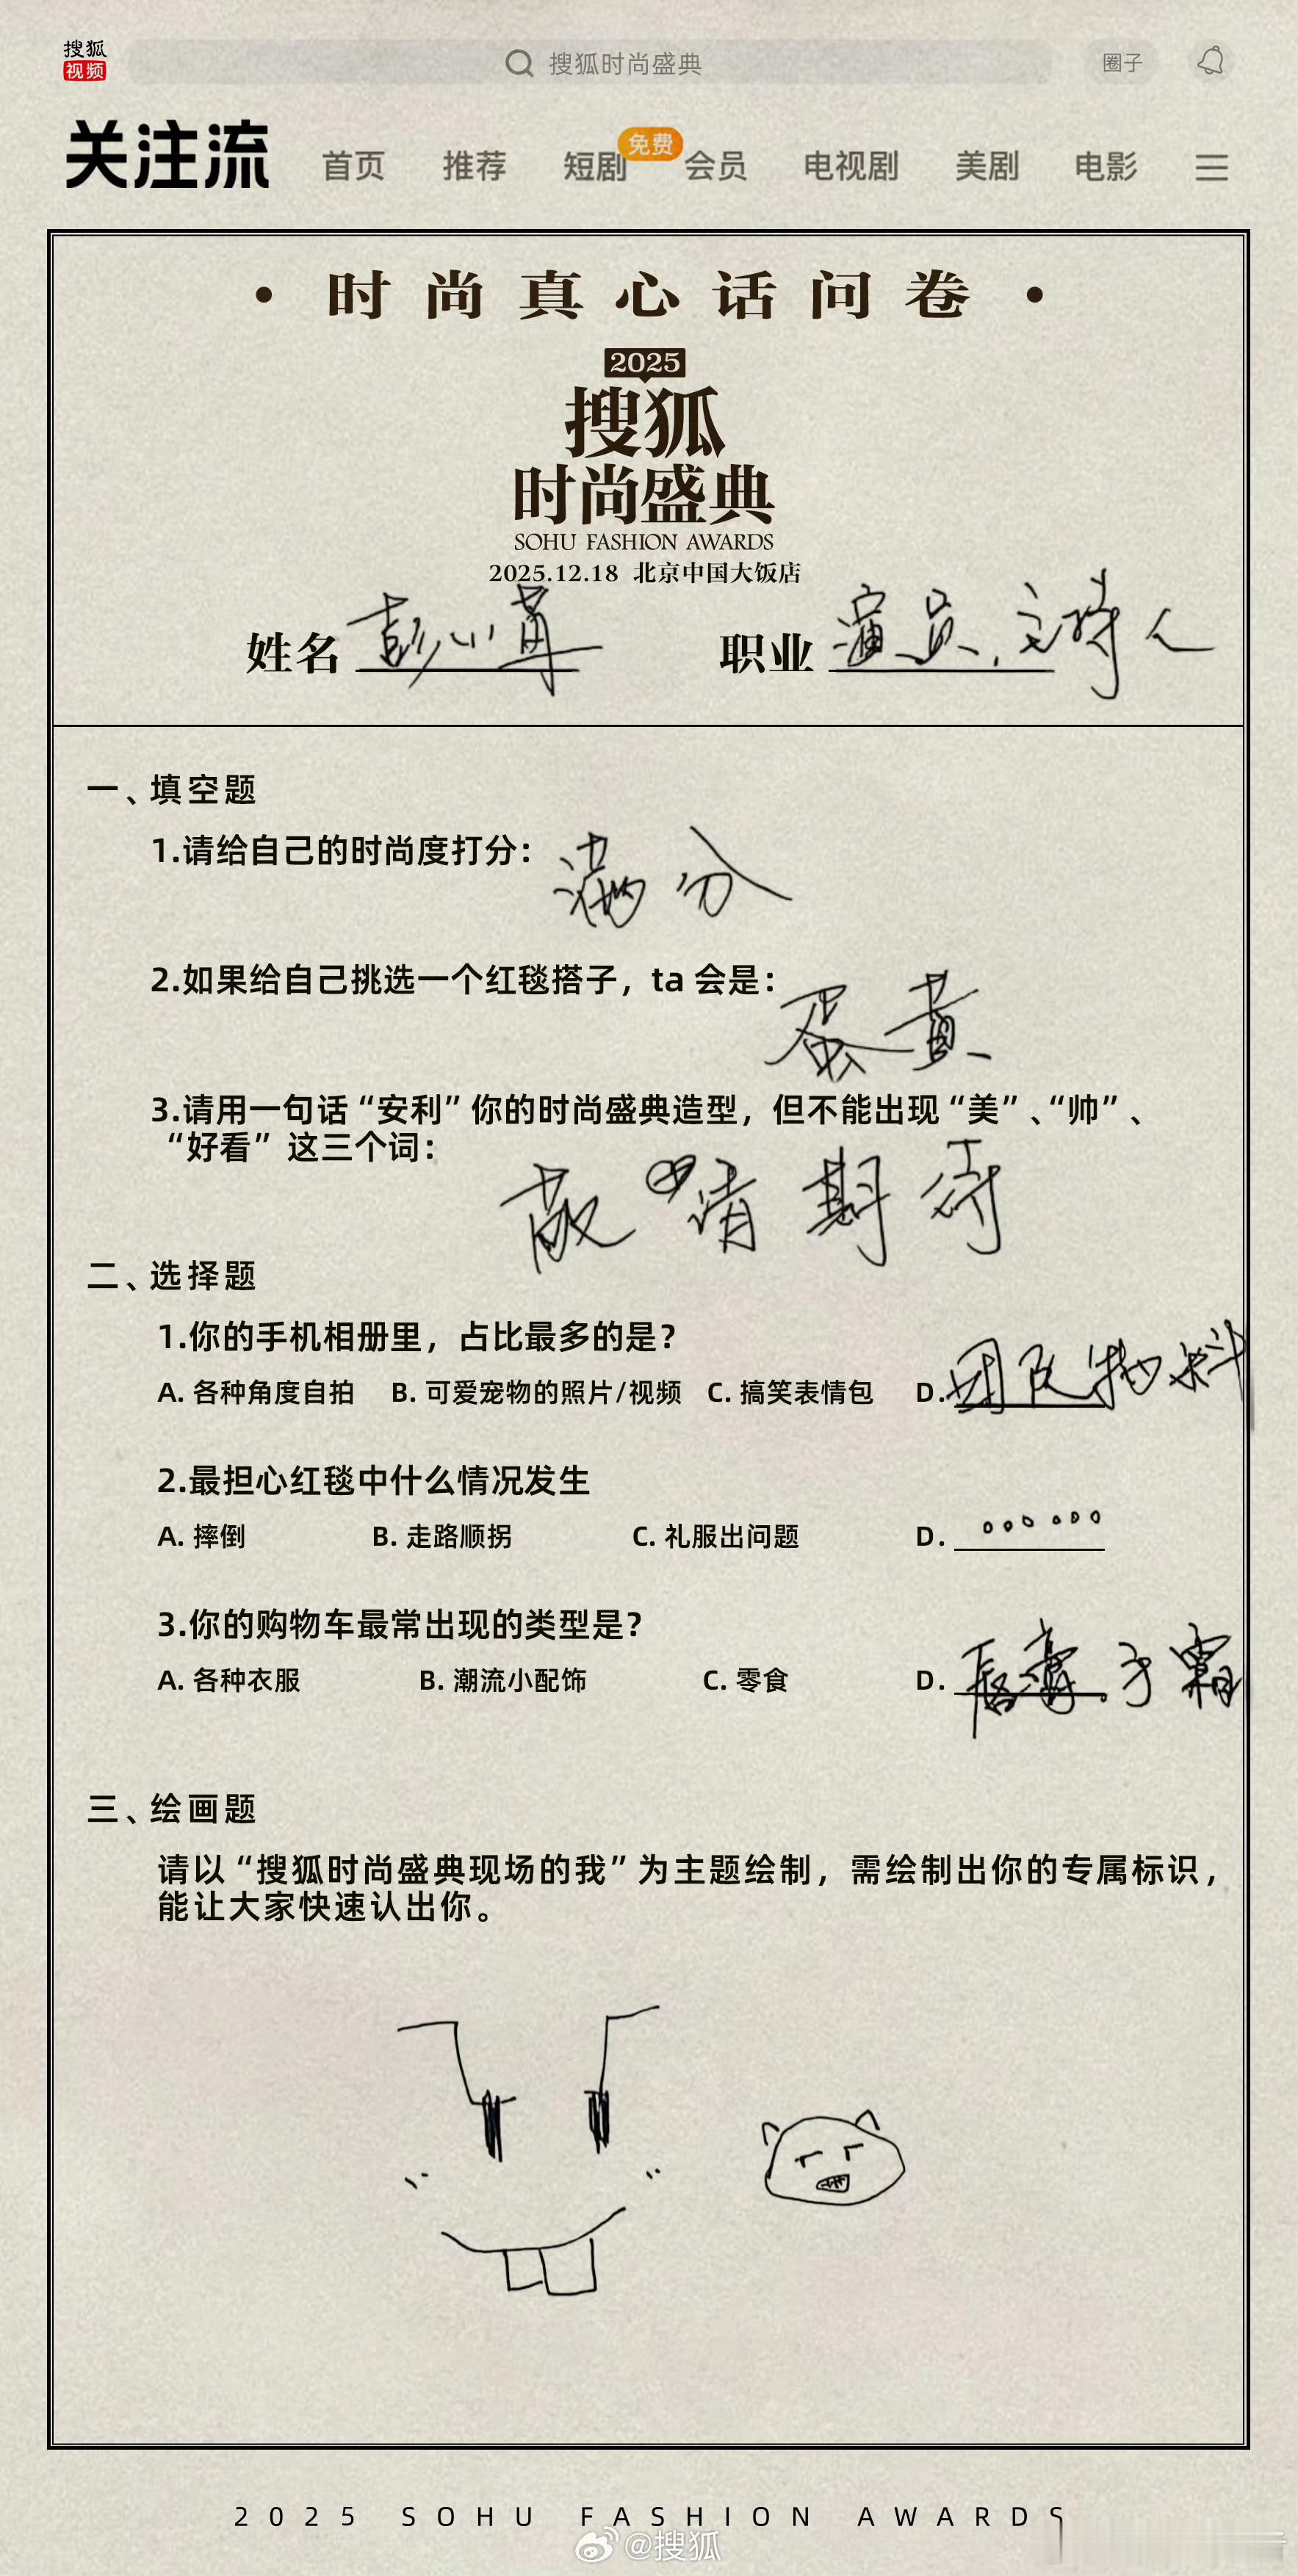 搜狐
视频
搜狐时尚盛典
圈子
关注流 首页 推荐 短剧 免费 会员 电视剧 美剧 电影
• 时尚真心话问卷 •
2025
搜狐
时尚盛典
SOHU FASHION AWARDS
2025.12.18 北京中国大饭店
姓名 彭小苒 职业 演员、主持人
一、填空题
1.请给自己的时尚度打分： 满分
2.如果给自己挑选一个红毯搭子，ta 会是： 蛋黄
3.请用一句话“安利”你的时尚盛典造型，但不能出现“美”、“帅”、
“好看” 这三个词：
敬请期待
二、选择题
1.你的手机相册里，占比最多的是？
A. 各种角度自拍 B. 可爱宠物的照片/视频 C. 搞笑表情包 D. 团队物料
2.最担心红毯中什么情况发生
A. 摔倒 B. 走路顺拐 C. 礼服出问题 D. 。。。。。。
3.你的购物车最常出现的类型是？
A. 各种衣服 B. 潮流小配饰 C. 零食 D. 唇膏、手霜
三、绘画题
请以“搜狐时尚盛典现场的我”为主题绘制，需绘制出你的专属标识，
能让大家快速认出你。
2025 SOHU FASHION AWARDS
@搜狐